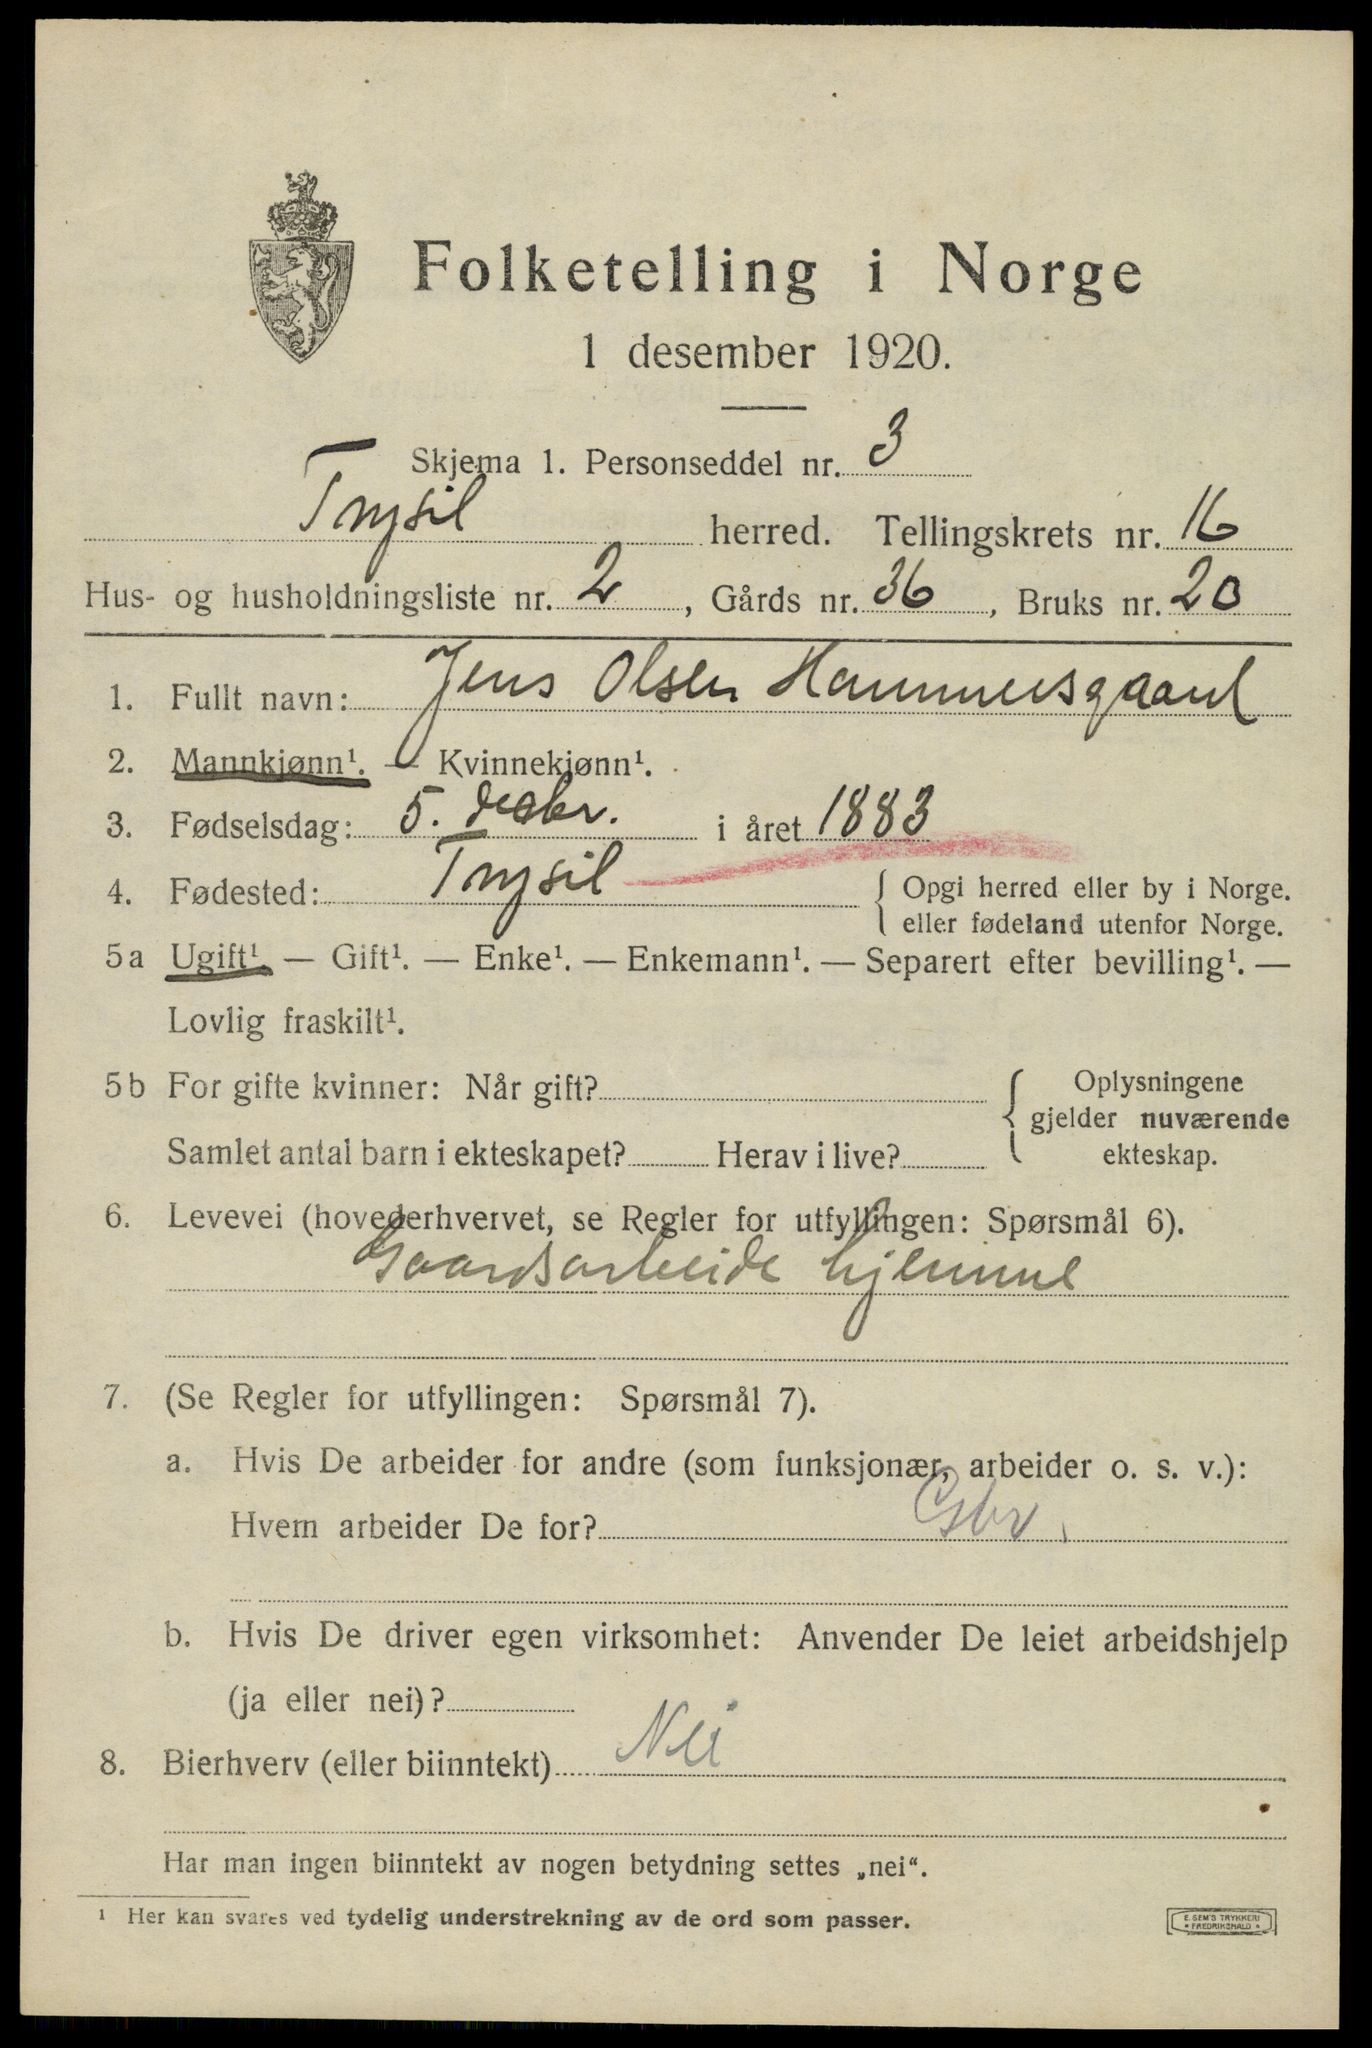 Folketelling i Norge
1 desember 1920.
Skjema 1. Personseddel nr. 3
Trysil herred. Tellingskrets nr. 16
Hus- og husholdningsliste nr. 2, Gårds nr. 36, Bruks nr. 20
1. Fullt navn: Jens Olsen Hammersgaard
2. Mannkjønn¹. — Kvinnekjønn¹.
3. Fødselsdag: 5. desbr. i året 1883
4. Fødested: Trysil { Opgi herred eller by i Norge.
eller fødeland utenfor Norge.
5a Ugift¹. — Gift¹. — Enke¹. — Enkemann¹. — Separert efter bevilling¹. —
Lovlig fraskilt¹.
5b For gifte kvinner: Når gift? { Oplysningene
gjelder nuværende
Samlet antal barn i ekteskapet? Herav i live? ekteskap.
6. Levevei (hovederhvervet, se Regler for utfyllingen: Spørsmål 6).
Gaardsarbeide hjemme
7. (Se Regler for utfyllingen: Spørsmål 7).
a. Hvis De arbeider for andre (som funksjonær, arbeider o. s. v.):
Hvem arbeider De for? Gbr.
b. Hvis De driver egen virksomhet: Anvender De leiet arbeidshjelp
(ja eller nei)?
8. Bierhverv (eller biinntekt) Nei
Har man ingen biinntekt av nogen betydning settes „nei“.
¹ Her kan svares ved tydelig understrekning av de ord som passer.
E. SEM'S TRYKKERI
* FREDRIKSHALD *